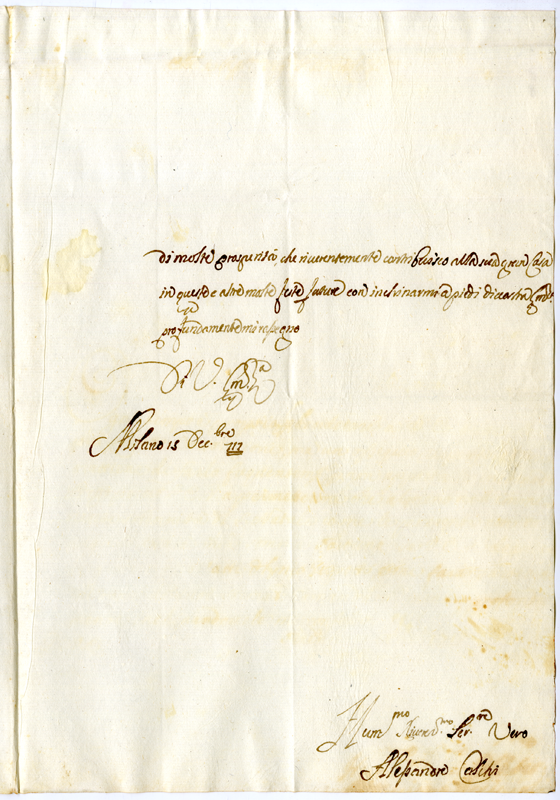 di molte prosperità, che riverentemente contribuisco alla sua gran Casa
in queste e altre molte feste future con inchinarmi a piedi di vostra Em.za
profundamente mi rasegno
Di V. Em.za
Milano 15 Dec.bre 711
Hum.mo Ser.re Vero
Alesandro